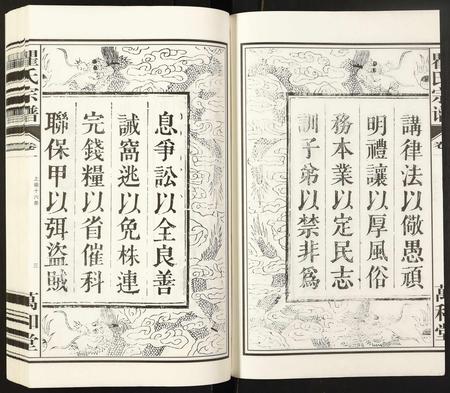 講律法以儆愚頑
明禮讓以厚風俗
務本業以定民志
訓子弟以禁非為
萬和堂
瞿氏宗譜
卷一
上諭十六條
三
萬和堂
息爭訟以全良善
誡窩逃以免株連
完錢糧以省催科
聯保甲以弭盜賊